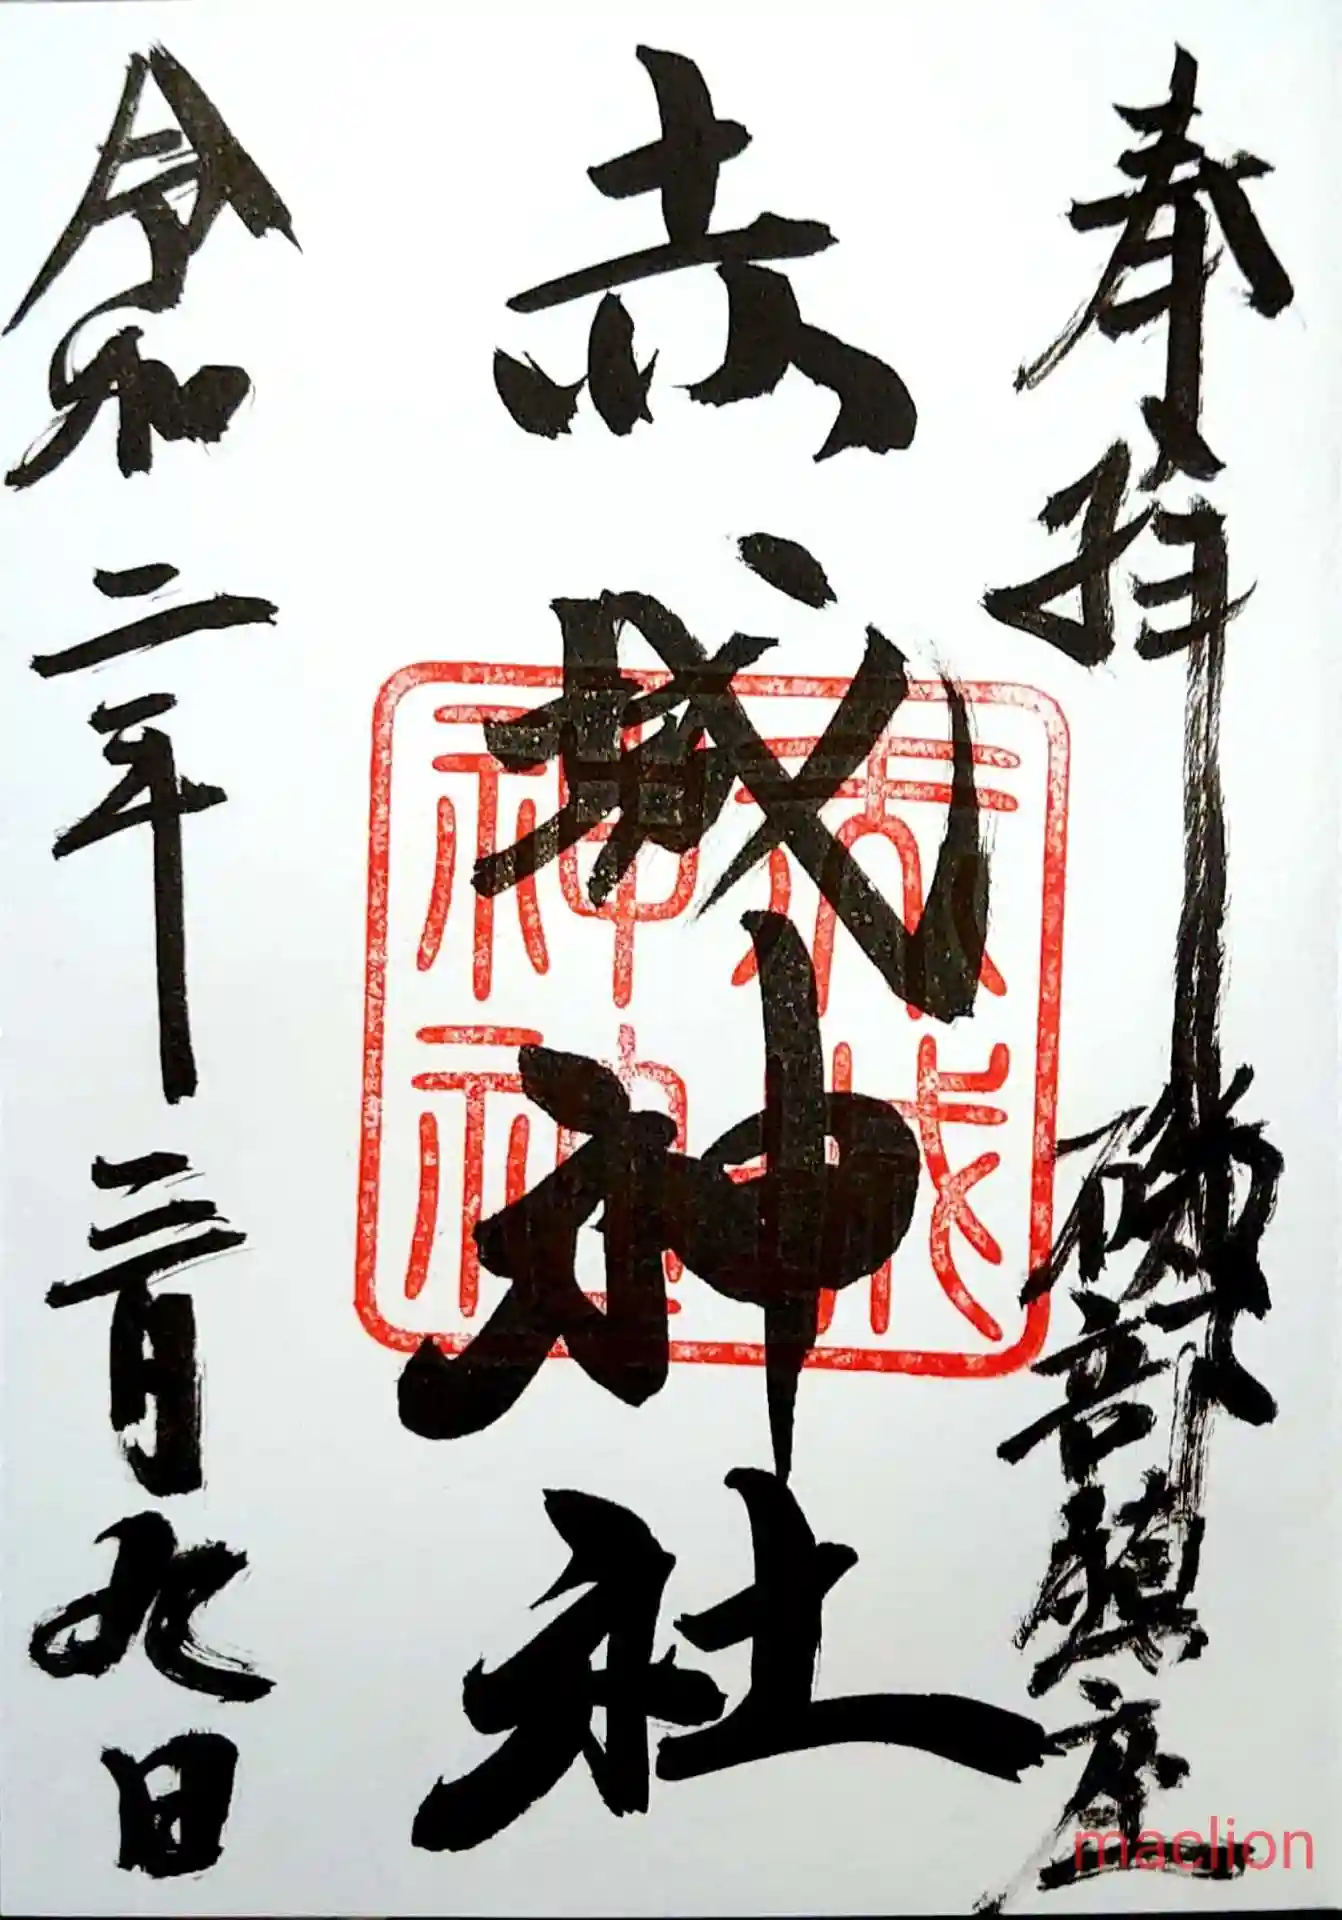 奉拝 磯部鎮座
赤城神社
令和二年三月九日
maclion